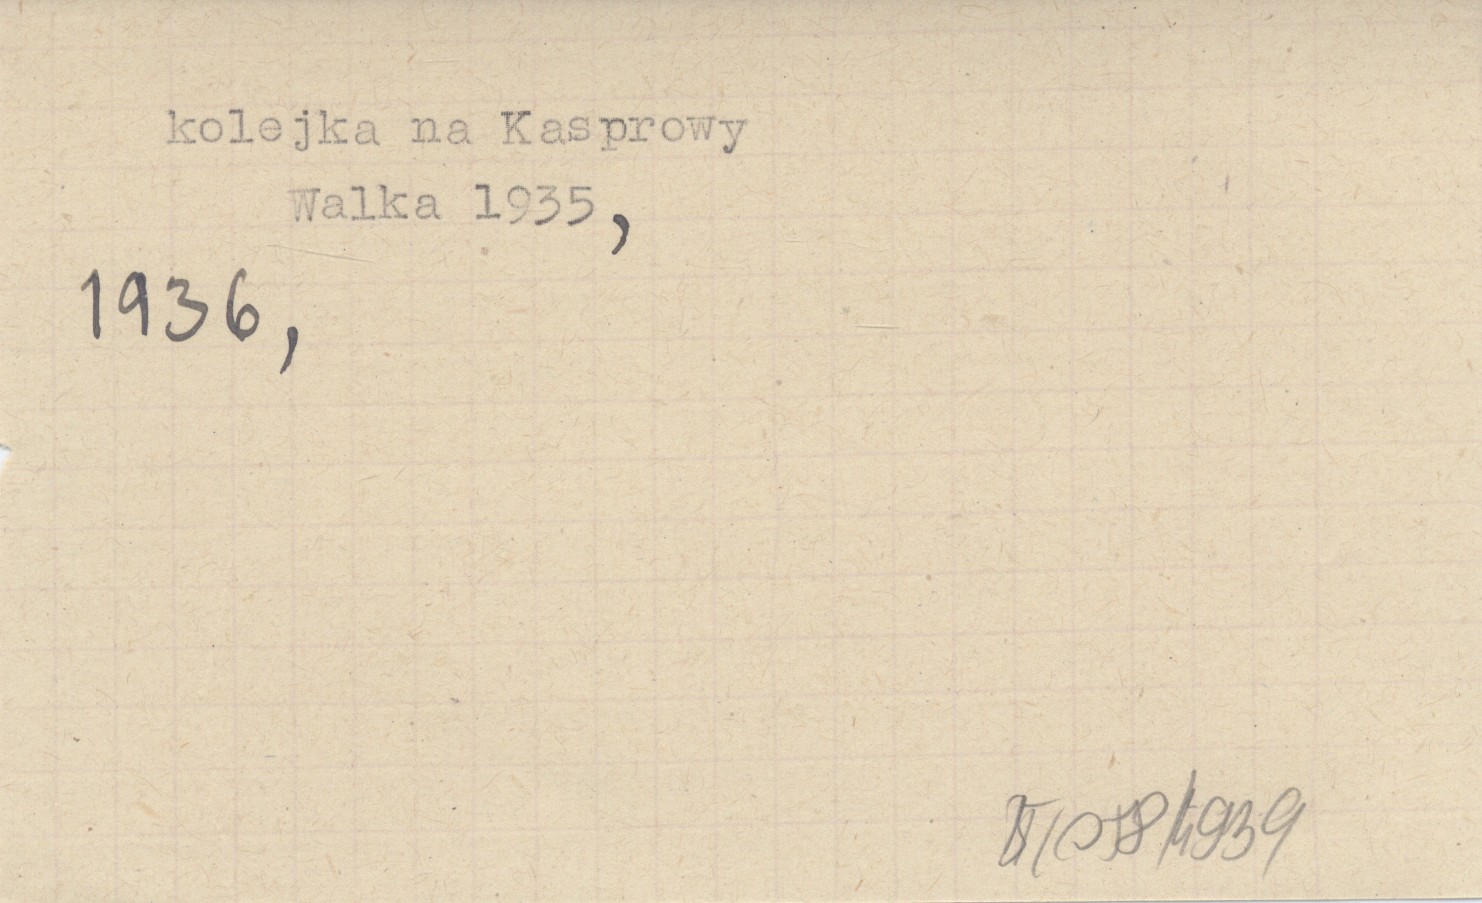 kolejka na Kasprowy
Walka 1935,
1936,